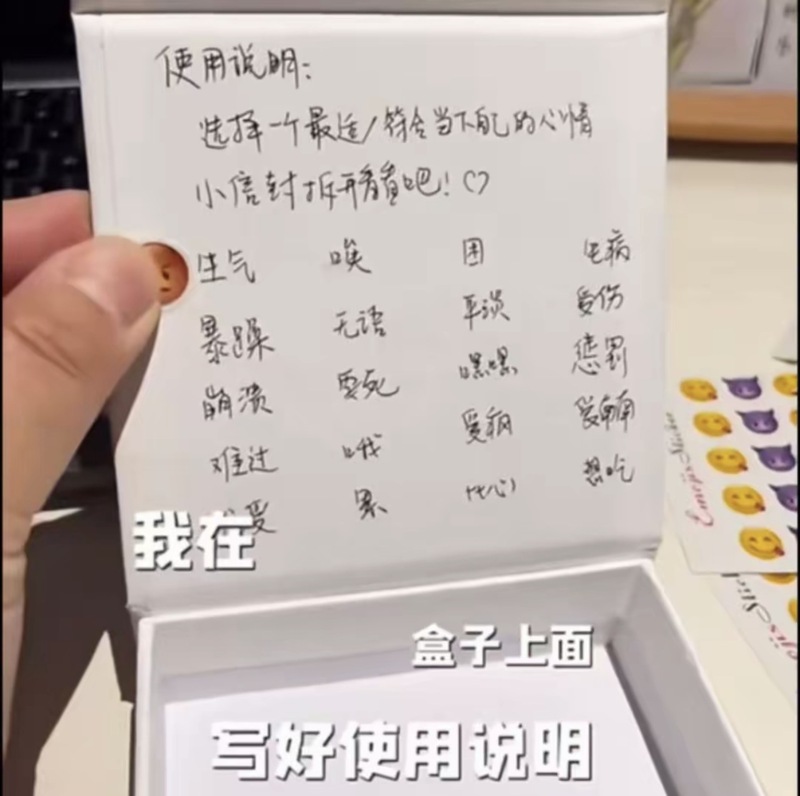 使用说明:
选择一个最适/符合当下自己的心情
小信封拆开看看吧!♡
生气 唉 困 生病
暴躁 无语 平淡 受伤
崩溃 要死 嘿嘿 惩罚
难过 哦
累 想吃
我在
盒子上面
写好使用说明
Emoji Sticker